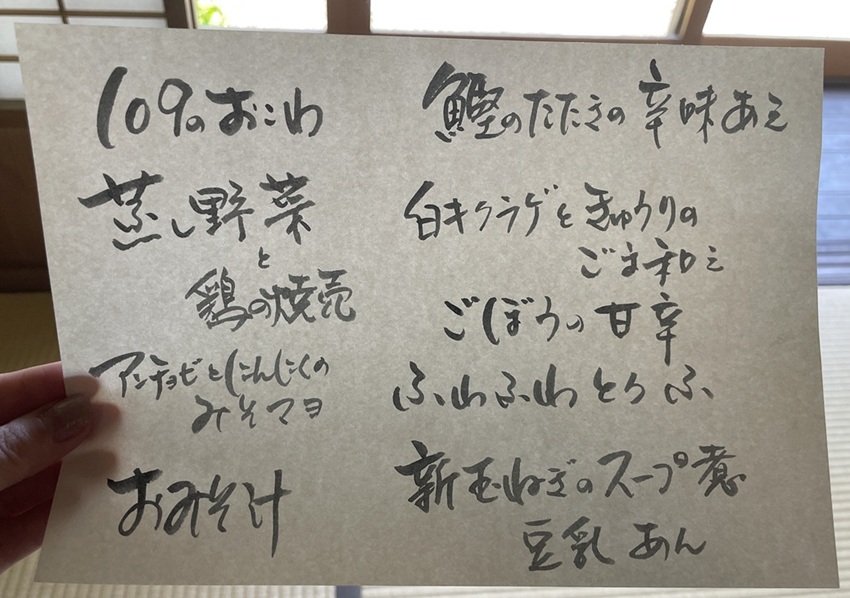 109のおこわ
蒸し野菜
と
鶏の焼売
アンチョビとにんにくの
みそマヨ
おみそ汁
鰹のたたきの辛味あえ
白キクラゲときゅうりの
ごま和え
ごぼうの甘辛
ふわふわとりふ
新玉ねぎのスープ煮
豆乳あん